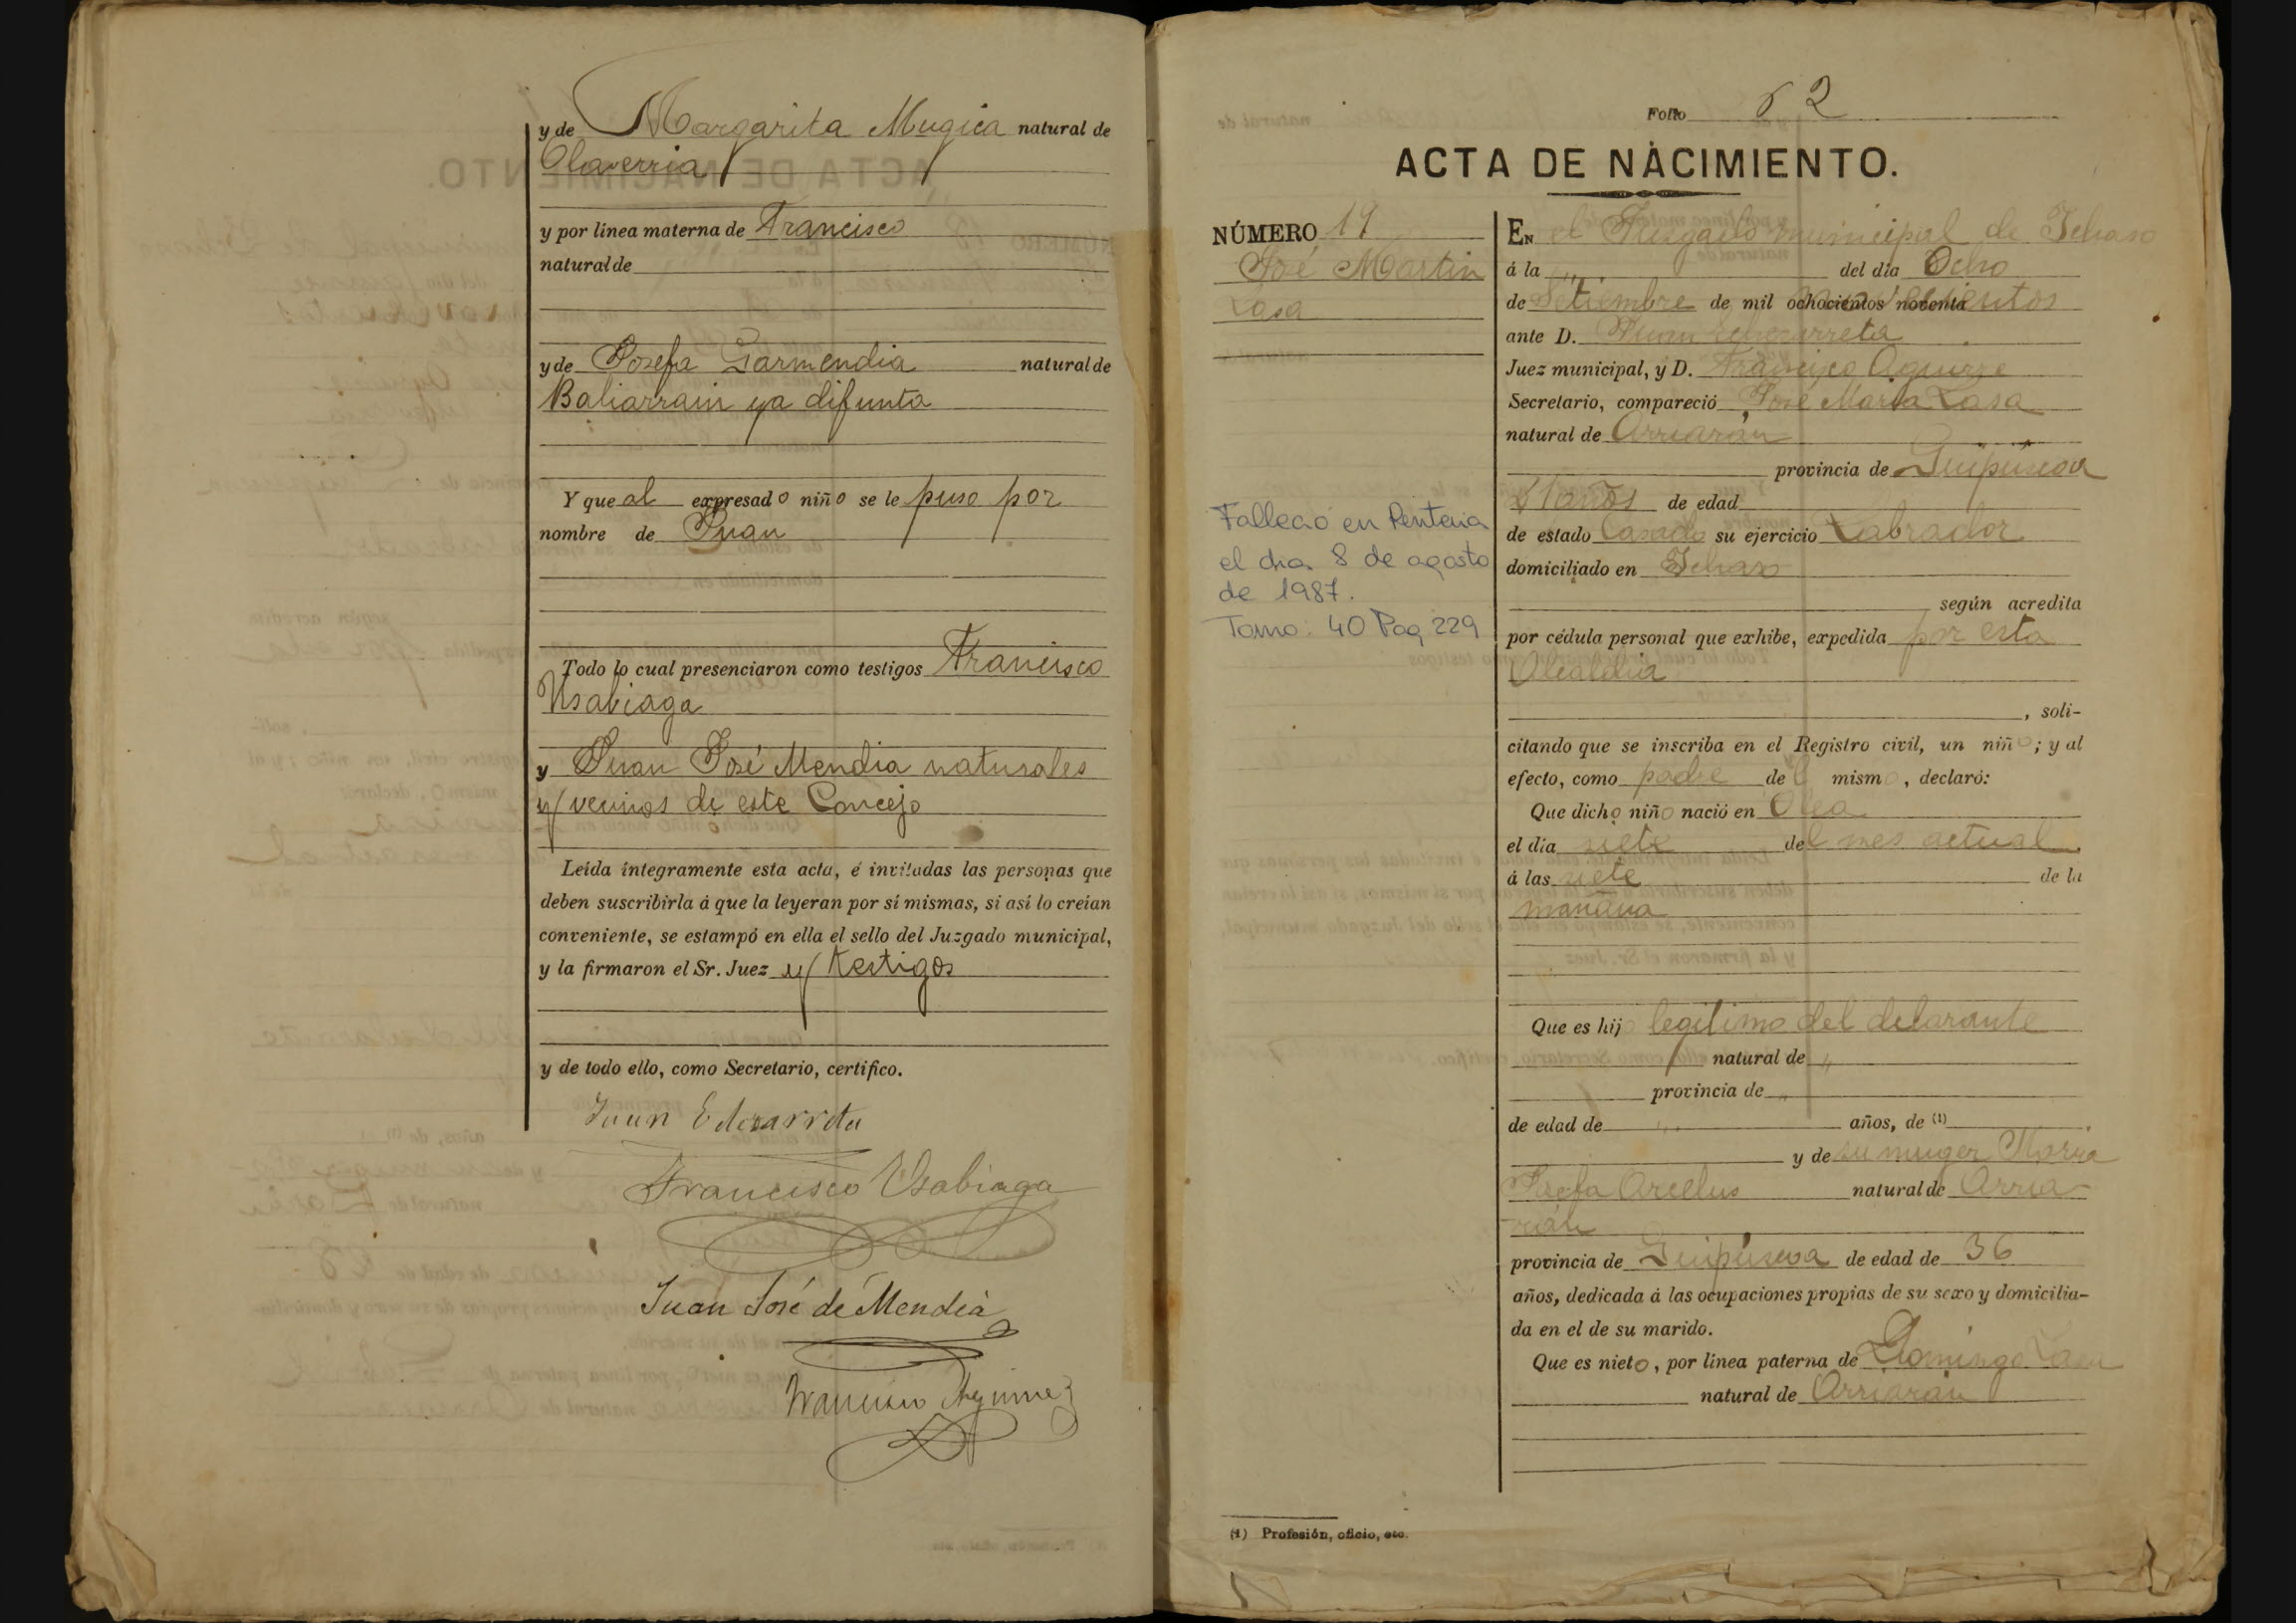 y de Margarita Mugica natural de
Olaverria
y por línea materna de Francisco
natural de
y de Josefa Garmendia natural de
Baliarrain ya difunta
Y que al expresado niño se le puso por
nombre de Juan
Todo lo cual presenciaron como testigos Francisco
Usabiaga
y Juan José Mendia naturales
y vecinos de este Concejo
Leída íntegramente esta acta, é invitadas las personas que
deben suscribirla á que la leyeran por sí mismas, si así lo creían
conveniente, se estampó en ella el sello del Juzgado municipal,
y la firmaron el Sr. Juez y testigos
y de todo ello, como Secretario, certifico.
Juan Echezarreta
Francisco Usabiaga
Juan José de Mendia
Francisco Aguirre
Folio 62
ACTA DE NACIMIENTO.
NÚMERO 19
José Martin
Lasa
Falleció en Renteria
el dia 8 de agosto
de 1987.
Tomo: 40 Pag 229
EN el Juzgado municipal de Ichaso
á la " del día Ocho
de Setiembre de mil ochocientos noventa novecientos
ante D. Juan Echezarreta
Juez municipal, y D. Francisco Aguirre
Secretario, compareció José Maria Lasa
natural de Arriarán
provincia de Guipúscoa
años de edad
de estado Casado su ejercicio Labrador
domiciliado en Ichaso
según acredita
por cédula personal que exhibe, expedida por esta
Alcaldia
, soli-
citando que se inscriba en el Registro civil, un niño; y al
efecto, como padre del mismo, declaró:
Que dicho niño nació en Olea
el día siete del mes actual
á las siete de la
mañana
Que es hijo legitimo del delarante
natural de "
provincia de "
de edad de " años, de (1)
y de su muger Maria
Josefa Arcelus natural de Arria-
rán
provincia de Guipúscoa de edad de 36
años, dedicada á las ocupaciones propias de su sexo y domicilia-
da en el de su marido.
Que es nieto, por línea paterna de Domingo Lasa
natural de Arriarán
(1) Profesión, oficio, etc.